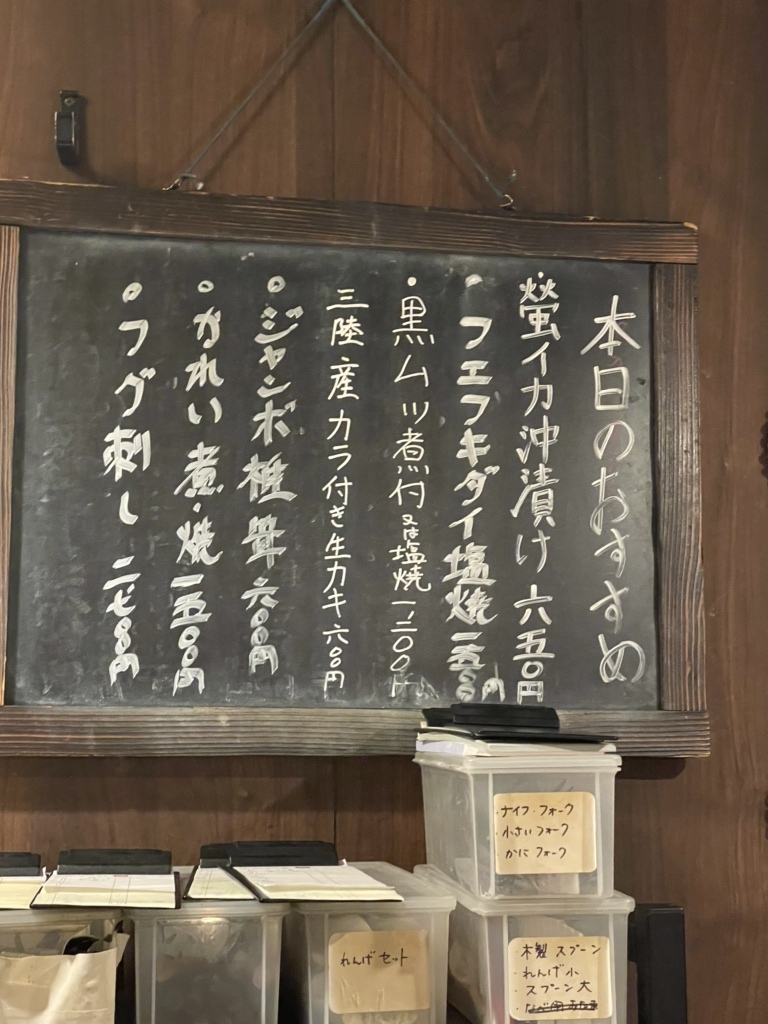 本日のおすすめ
・螢イカ沖漬け 六五〇円
・フエフキダイ塩焼 一五〇〇円
・黒ムツ煮付又は塩焼 一、二〇〇円
三陸産カラ付き生カキ 六〇〇円
○ジャンボ椎茸 六〇〇円
○かれい煮・焼 一五〇〇円
○フグ刺し 二七〇〇円
・ナイフ・フォーク
・小さいフォーク
・かにフォーク
れんげセット
・木製スプーン
・れんげ小
・スプーン大